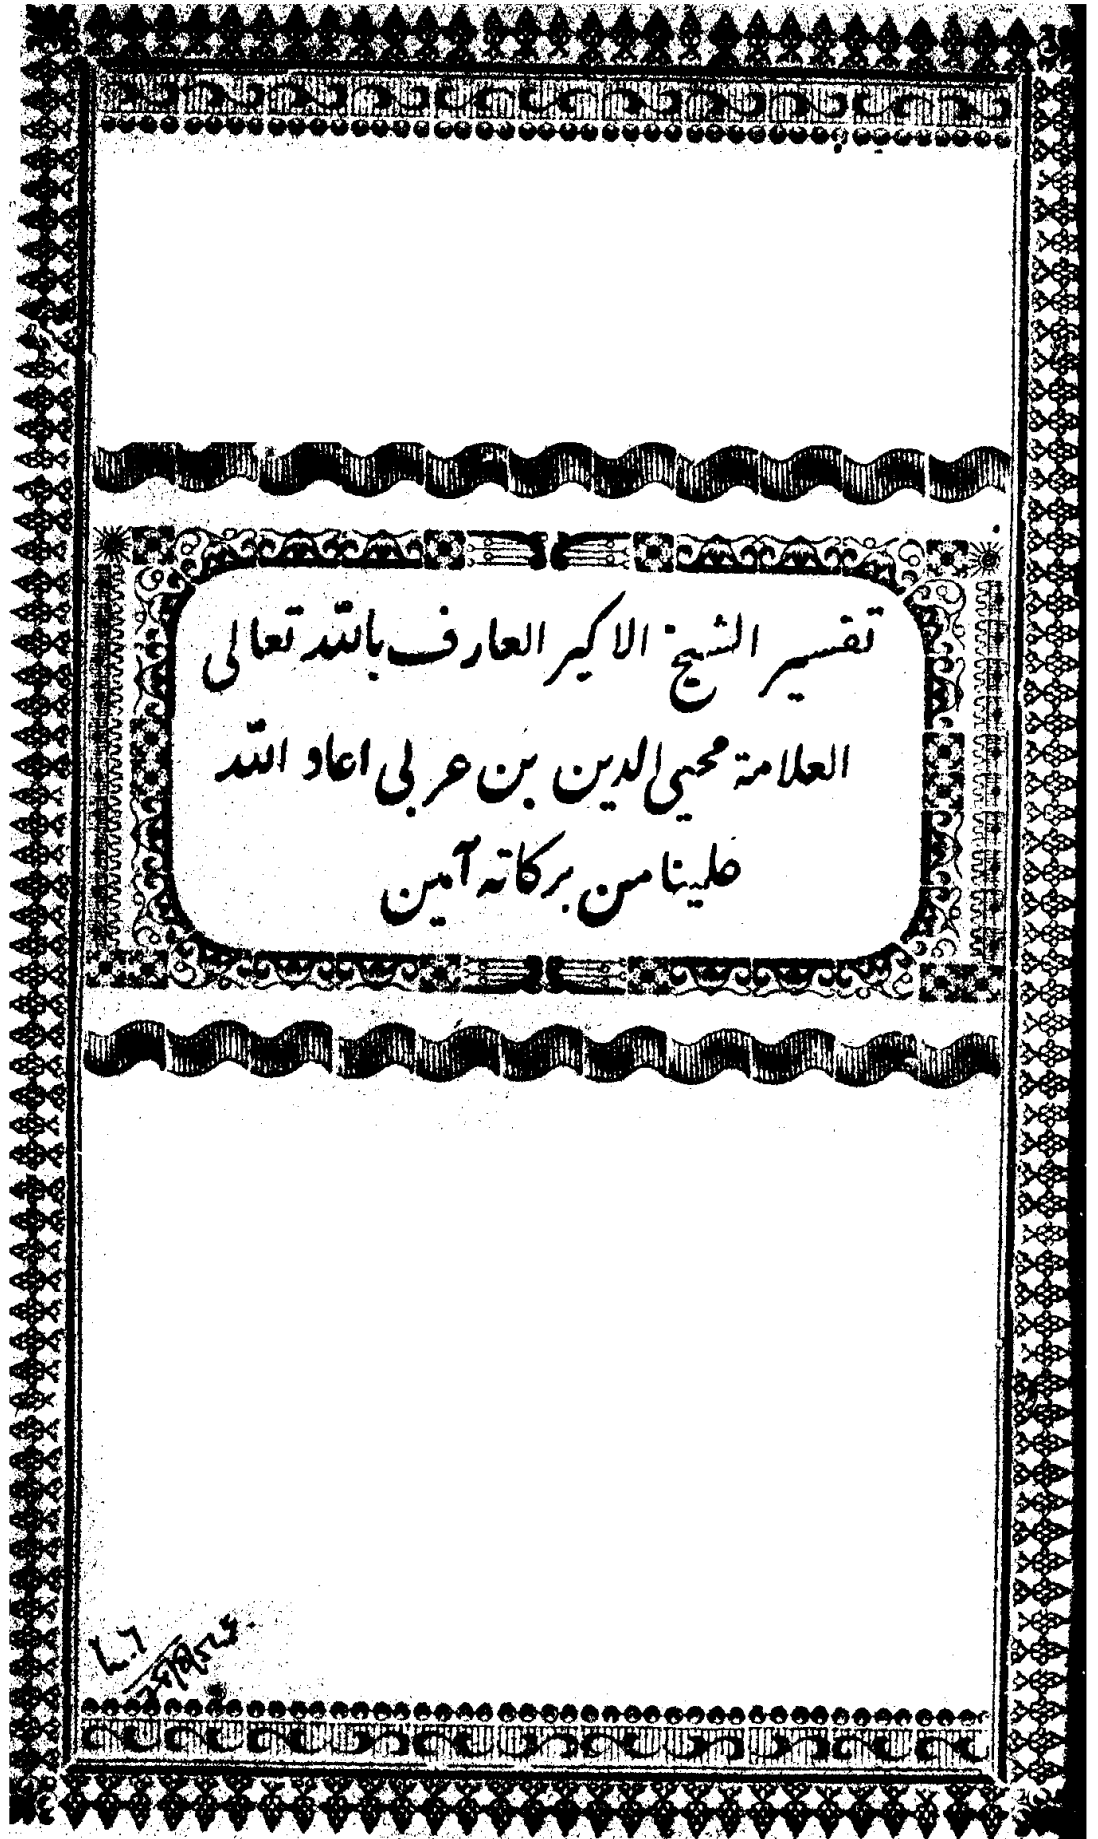 تفسير الشيخ الاكبر العارف بالله تعالى
العلامة محيي الدين بن عربى اعاد الله
علينا من بركاته آمين